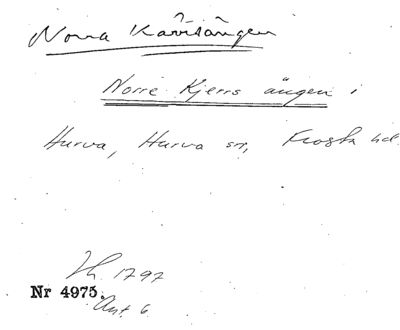 Norra Kärrsången
Norre Kjerrs ängen i
Hurva, Hurva sn, Frosta hd.
1797
Nr 4975.
Akt 6